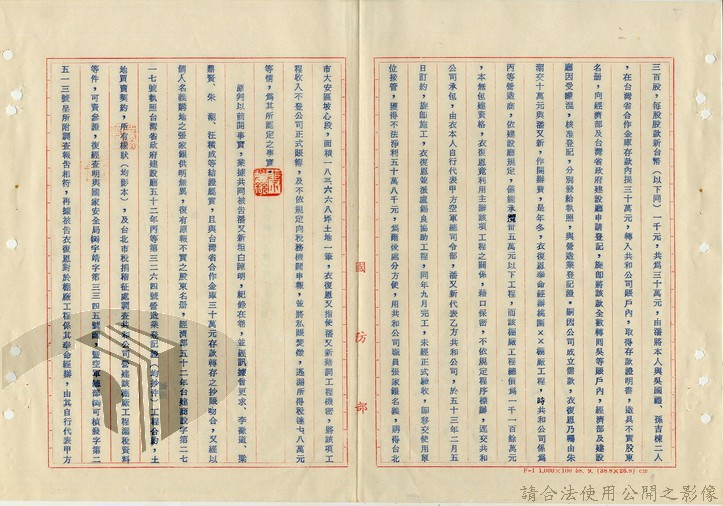 三百股，每股股款新台幣（以下同）一千元，共為三十萬元，由潘將本人與吳國禮、孫吉棟二人
，在台灣省合作金庫存款內提三十萬元，轉入共和公司賬戶內，取得存款證明書，造具不實股東
名冊，向經濟部及台灣省政府建設廳申請登記，旋即將該款全數轉回吳等賬戶內，經濟部及建設
廳因受矇混，核准登記，分別發給執照，與營造業登記證，嗣因公司成立需款，衣復恩乃囑由朱
交十萬元與潘又新，作開辦費，是年冬，衣復恩奉命經辦桃園××棚廠工程，時共和公司係為
丙等營造商，依建設廳規定，僅能承攬卅五萬元以下工程，而該棚廠工程總價為一千一百餘萬元
，本無包建資格，衣復恩竟利用主辦該項工程之關係，藉口保密，不依規定程序標辦，逕交共和
公司承包，由衣本人自行代表甲方空軍總司令部，潘又新代表乙方共和公司，於五十三年二月五
日訂約，旋即施工，衣復恩並派盧錫良協助工程，同年九月完工，未經正式驗收，即移交使用單
位接管，獲得不法淨利五十萬八千元，為嗣後處分方便，用共和公司職員張家銀名義，購得台北
國防部
市大安區坡心段，面積一八三六六八坪土地一筆，衣復恩又指使潘又新藉詞工程機密，將該項工
程收入不登公司正式賬簿，及不依規定向稅務機關申報，並將私賬焚燬，逃漏所得稅達七八萬元
等情，為其所認定之事實。
原判以前開事實，業據共同被告潘又新坦白陳明，紀錄在卷，並經訊據曾更求、李徽道、梁
肅賢、朱、汪積成等結證屬實，且與台灣省合作金庫三十萬元存款轉存之抄賬吻合，又經以
個人名義購地之張家銀供明無異，復有原報不實之股東名冊，經濟部五十二年台經商設字第二七
一七號執照台灣省政府建設廳五十二年丙等第三二六四號營造業登記證（均抄件）工程合約，土
地買賣契約，所有權狀（均影本），及台北市稅捐稽征處調查共和公司營建該棚廠工程漏稅資料
等件，可資參證，復經查明與國家安全局(54)字靖字第三三四五號函，暨空軍總部(55)可楨發字第二
五一三號呈所附調查報告相符，再據被告衣復恩對於棚廠工程係其奉命經辦，由其自行代表甲方
F-1 1,000×100 58. 9. (38.8×26.8) cm
請合法使用公開之影像